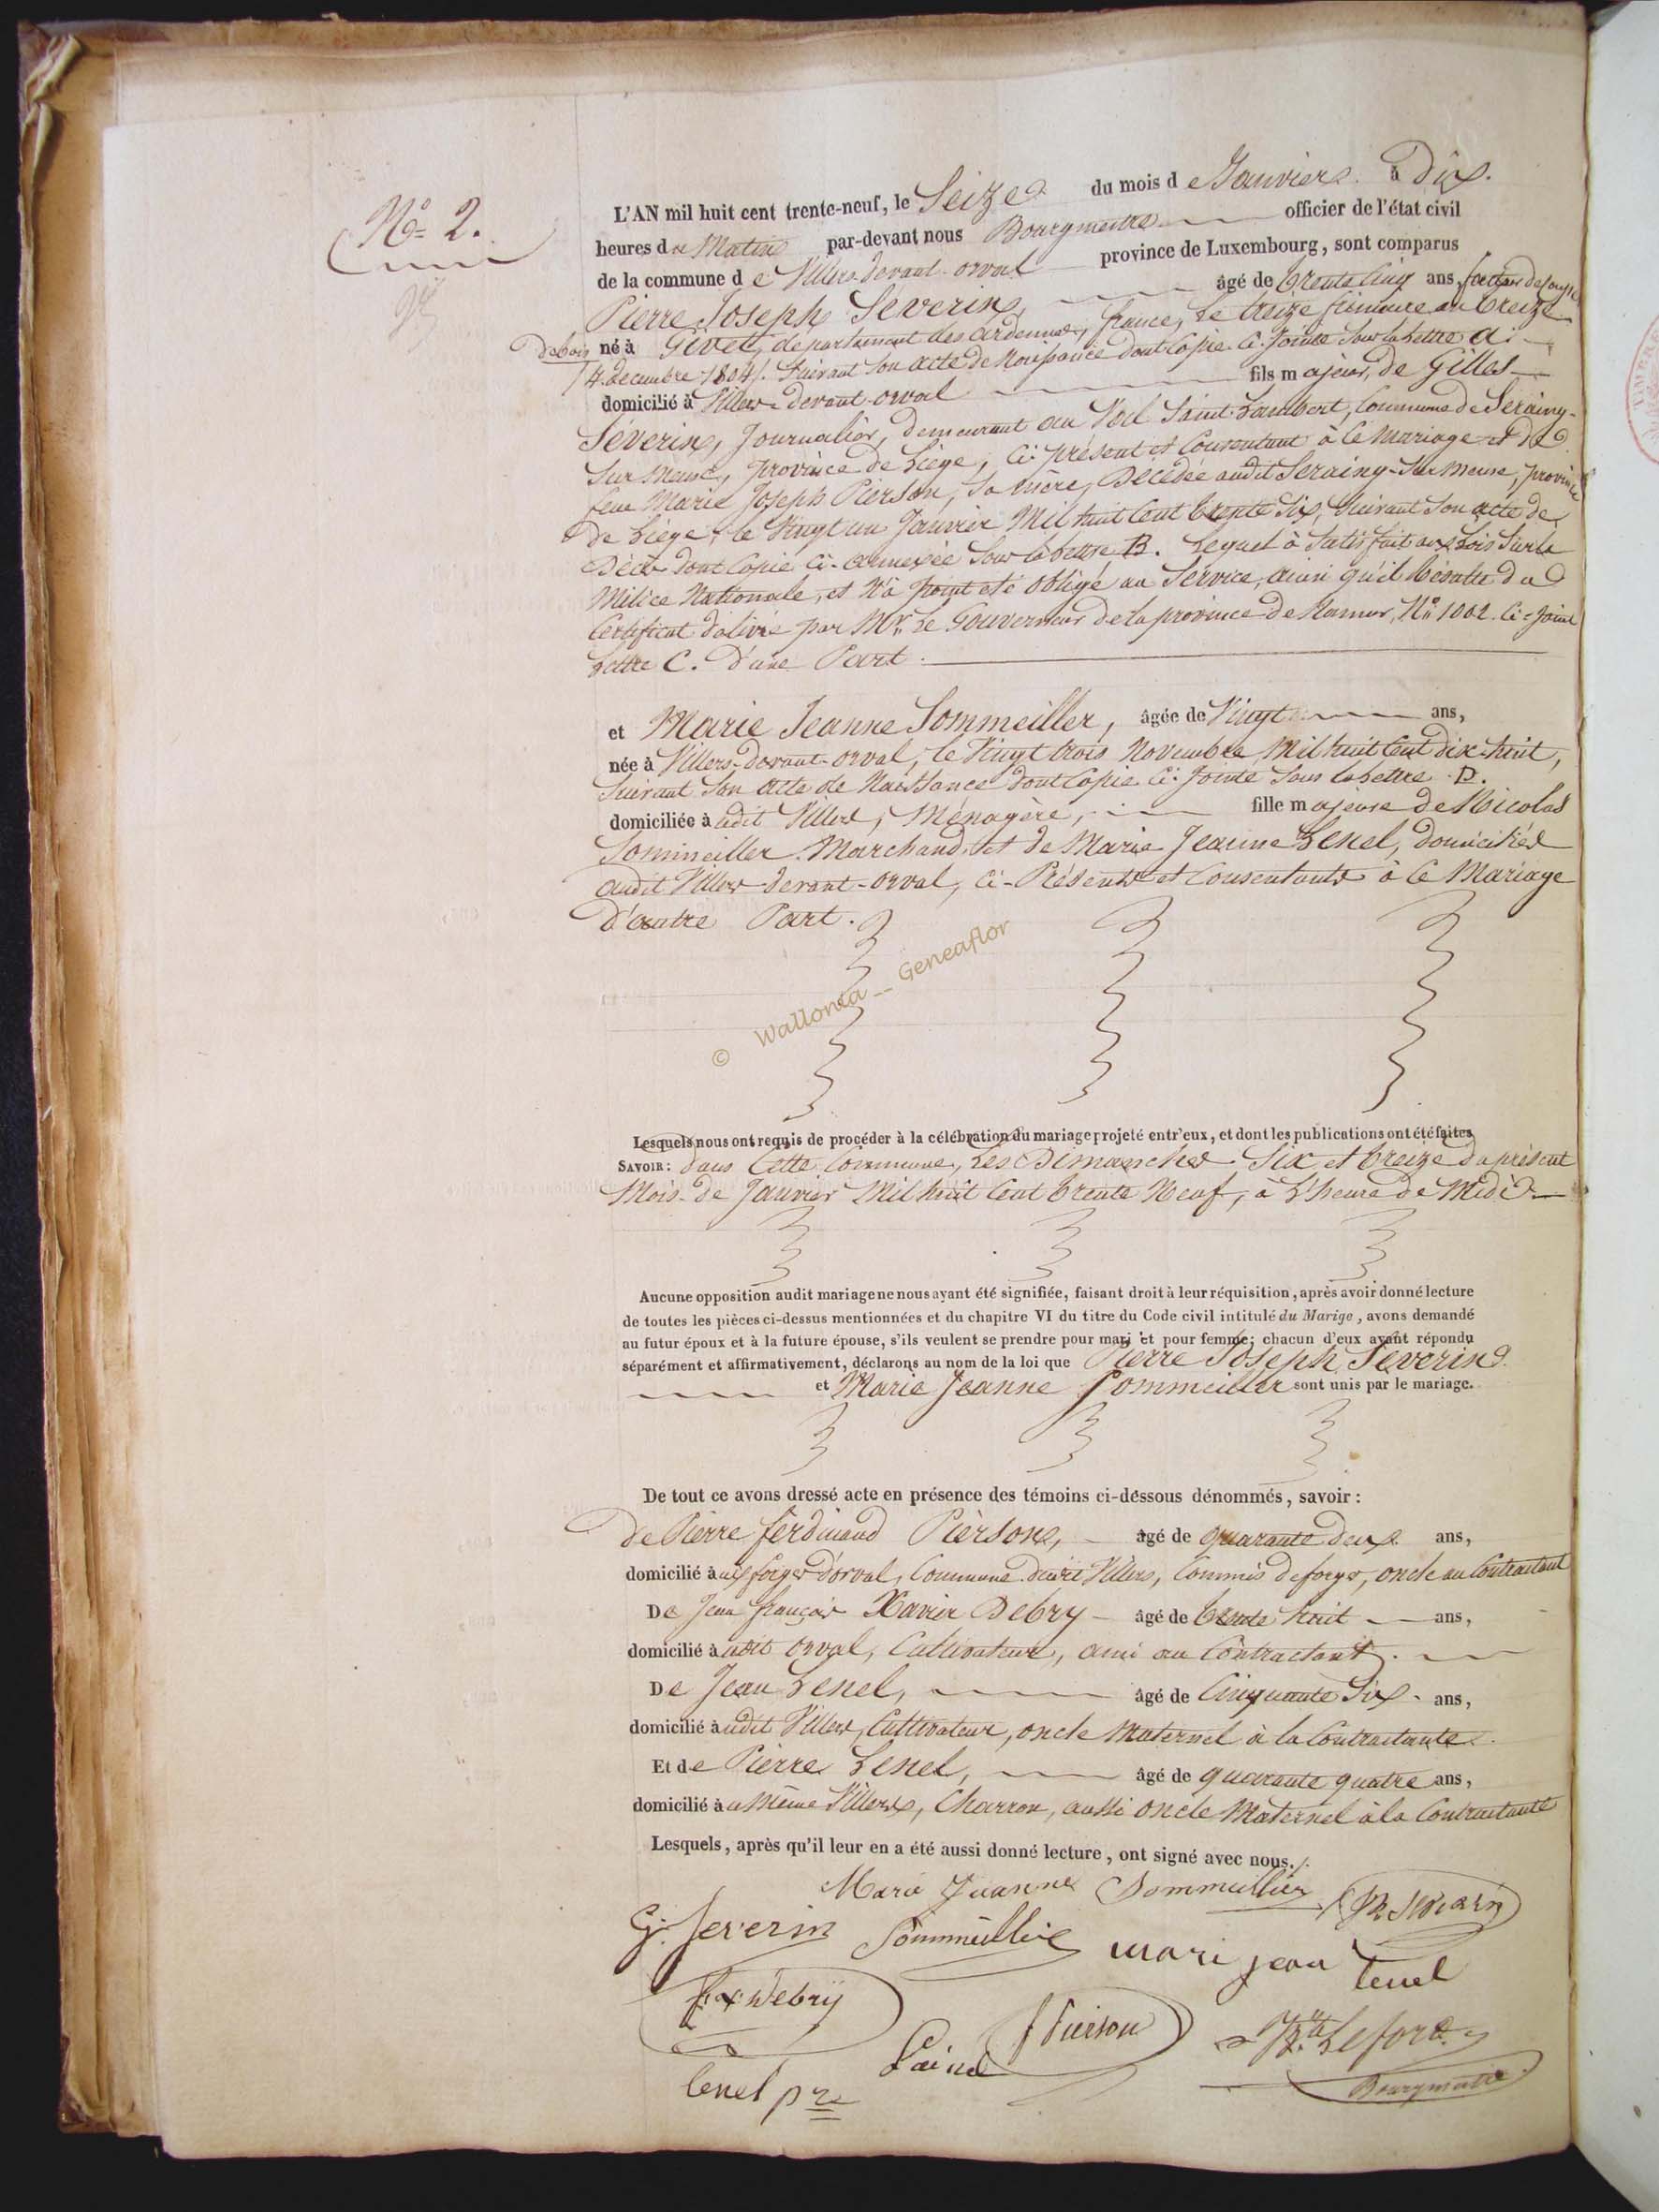 N° 2.
L'AN mil huit cent trente-neuf, le Seize du mois de Janvier à Dix
heures du Matin par-devant nous Bourgmestre officier de l'état civil
de la commune de Villers-devant-orval province de Luxembourg, sont comparus
Pierre Joseph Séverin, âgé de trente cinq ans, facteur de forges
de bois né à Givet, département des ardennes, france, le treize frimaire an treize
/4 decembre 1804/. Suivant son acte de Naissance dont Copie Ci-Jointe Sous la lettre A.
domicilié à Villers-devant-orval fils majeur, de Gilles
Séverin, Journalier, demeurant au Val Saint-Lambert, Commune de Serainy-
Sur meuse, province de Liège, Ci-présent et Consentant à Ce mariage et de
feue Marie Joseph Pierson, Sa mère, Décédée audit Serainy-Sur meuse, province
de Liège, le Vingt un Janvier Mil huit Cent trente Six, Suivant Son acte de
Décès dont Copie Ci-annexée Sous la lettre B. Lequel à Satisfait aux Lois Sur la
Milice Nationale, et N'à point eté obligé au Service, ainsi qu'il Résulte du
Certificat délivré par Mr. Le Gouverneur de la province de Namur, N° 1002. Ci-Joint
Lettre C. D'une Part.
et Marie Jeanne Sommeiller, âgée de Vingt ans,
née à Villers-devant-orval, le Vingt trois Novembre Mil huit Cent dix-huit,
Suivant Son acte de Naissance dont Copie Ci-Jointe Sous la lettre D.
domiciliée à udit Villers, Ménagère, fille majeure de Nicolas
Sommeiller Marchand, et de Marie Jeanne Lenel, domiciliés
audit Villers-devant-orval, Ci-Présents et Consentants à Ce Mariage
D'autre Part.
© Wallonia _ Geneaflor
Lesquels nous ont requis de procéder à la célébration du mariage projeté entr'eux, et dont les publications ont été faites
SAVOIR: dans Cette Commune, Les Dimanches Six et treize du présent
Mois de Janvier Mil huit Cent trente Neuf, à L'heure de Midi
Aucune opposition audit mariage ne nous ayant été signifiée, faisant droit à leur réquisition, après avoir donné lecture
de toutes les pièces ci-dessus mentionnées et du chapitre VI du titre du Code civil intitulé du Marige, avons demandé
au futur époux et à la future épouse, s'ils veulent se prendre pour mari et pour femme; chacun d'eux ayant répondu
séparément et affirmativement, déclarons au nom de la loi que Pierre Joseph Séverin
et Marie Jeanne Sommeiller sont unis par le mariage.
De tout ce avons dressé acte en présence des témoins ci-dessous dénommés, savoir:
de Pierre ferdinand Pierson, âgé de quarante deux ans,
domicilié à ux forges d'orval, Commune dudit Villers, Commis de forges, oncle au Contractant
De Jean françois Xavier Debry âgé de trente huit ans,
domicilié à udit orval, Cultivateur, ami au Contractant.
De Jean Lenel, âgé de Cinquante Six ans,
domicilié à udit Villers, Cultivateur, oncle Maternel à la Contractante.
Et de Pierre Lenel, âgé de quarante quatre ans,
domicilié à u même Villers, Charron, aussi oncle Maternel à la Contractante
Lesquels, après qu'il leur en a été aussi donné lecture, ont signé avec nous.
Marie Jeanne Sommeillier
G. Severin Sommeillier mari jean lenel
f x Debry
f Pierson Lefort
lenel pre Bourgmestre